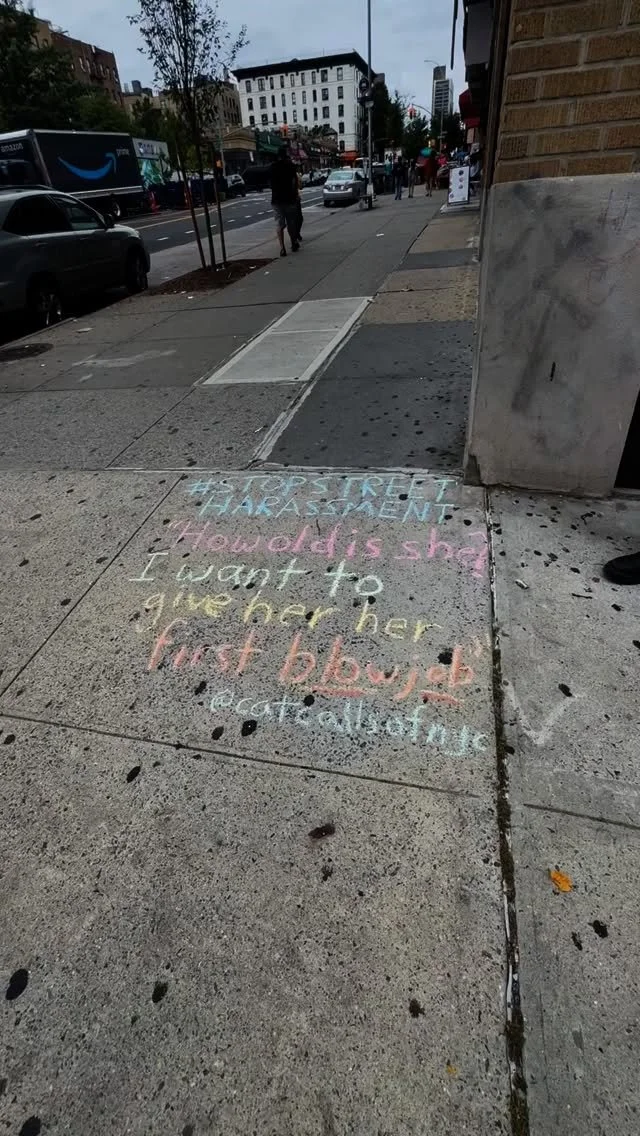 amazon
prime
#STOPSTREET
HARASSMENT
"How old is she?
I want to
give her her
first blowjob"
@catcallsofnyc